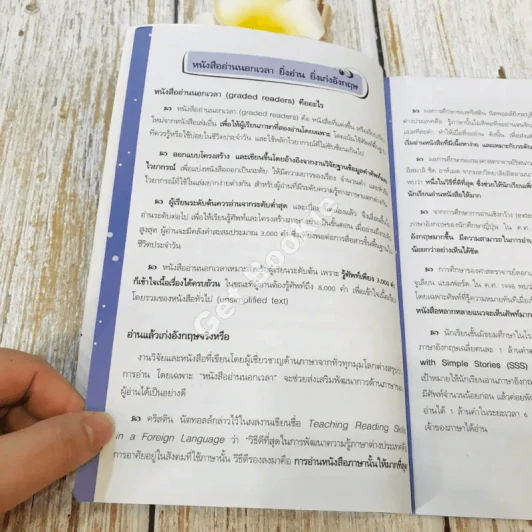 หนังสืออ่านนอกเวลา ยิ่งอ่าน ยิ่งเก่งอังกฤษ
หนังสืออ่านนอกเวลา (graded readers) คืออะไร
หนังสืออ่านนอกเวลา (graded readers) คือ หนังสือที่แต่งขึ้น หรือเรียบเรียง
ใหม่จากหนังสือเล่มอื่น เพื่อให้ผู้เรียนภาษาที่สองอ่านโดยเฉพาะ โดยเน้นใช้คำศัพท์พื้นฐาน
ที่ควรรู้หรือใช้บ่อยในชีวิตประจำวัน และใช้หลักไวยากรณ์ที่ไม่ซับซ้อนเกินไป
ออกแบบโครงสร้าง และเขียนขึ้นโดยอ้างอิงจากงานวิจัยฐานข้อมูลคำศัพท์และ
ไวยากรณ์ เพื่อแบ่งหนังสือออกเป็นระดับ ให้มีความยาวของเรื่อง จำนวนคำ และหลัก
ไวยากรณ์ที่ใช้ในเล่มยากง่ายต่างกัน สำหรับผู้อ่านที่มีระดับความรู้ทางภาษาแตกต่างกัน
ผู้เรียนระดับต้นควรอ่านจากระดับต่ำสุด และเมื่ออ่านคล่องแล้ว จึงเลื่อนขึ้นไป
อ่านระดับต่อไป เพื่อให้เรียนรู้ศัพท์และโครงสร้างภาษาอย่างเป็นขั้นตอน เมื่ออ่านถึงระดับ
สูงสุด ผู้อ่านจะมีคลังคำสะสมประมาณ 3,000 คำ ซึ่งเพียงพอต่อการสื่อสารขั้นพื้นฐานใน
ชีวิตประจำวัน
หนังสืออ่านนอกเวลาเหมาะสำหรับผู้เรียนระดับต้น เพราะ รู้ศัพท์เพียง 3,000 คำ
ก็เข้าใจเนื้อเรื่องได้ครบถ้วน ในขณะที่ผู้อ่านต้องรู้ศัพท์ถึง 8,000 คำ เพื่อเข้าใจเนื้อเรื่อง
โดยรวมของหนังสือทั่วไป (unsimplified text)
อ่านแล้วเก่งอังกฤษจริงหรือ
งานวิจัยและหนังสือที่เขียนโดยผู้เชี่ยวชาญด้านภาษาจากทั่วทุกมุมโลกต่างสรุปว่า
การอ่าน โดยเฉพาะ "หนังสืออ่านนอกเวลา" จะช่วยส่งเสริมพัฒนาการด้านภาษาของ
ผู้อ่านได้เป็นอย่างดี
คริสติน นัตทอลล์กล่าวไว้ในผลงานเขียนชื่อ Teaching Reading Skills
in a Foreign Language ว่า "วิธีดีที่สุดในการพัฒนาความรู้ภาษาต่างประเทศคือ
การอาศัยอยู่ในสังคมที่ใช้ภาษานั้น วิธีดีรองลงมาคือ การอ่านหนังสือภาษานั้นให้มากที่สุด
ต่างประเทศคือ
นักเรียนอ่านหนังสือให้มาก
จากการศึกษาการอ่าน
ภาษาอังกฤษของนักศึกษาญี่ปุ่น ใน ค.ศ.
อังกฤษมากขึ้น มีความสามารถในการอ่าน
น้อยกว่าอย่างเห็นได้ชัด
การศึกษาของศาสตราจารย์
จูเลียน แบมฟอร์ด ใน ค.ศ. 1998 พบว่า
หนังสือหลากหลายแนวจะเห็นศัพท์มาก
นักเรียนชั้นมัธยมศึกษาในโร
ภาษาอังกฤษเฉลี่ยคนละ 1 ล้านคำ
with Simple Stories (SSS)
เป้าหมายให้นักเรียนอ่านภาษาอังกฤษ
มีศัพท์จำนวนน้อยก่อน แล้วค่อย
อ่านได้ 1 ล้านคำในระยะเวลา 6
เจ้าของภาษาได้อ่าน